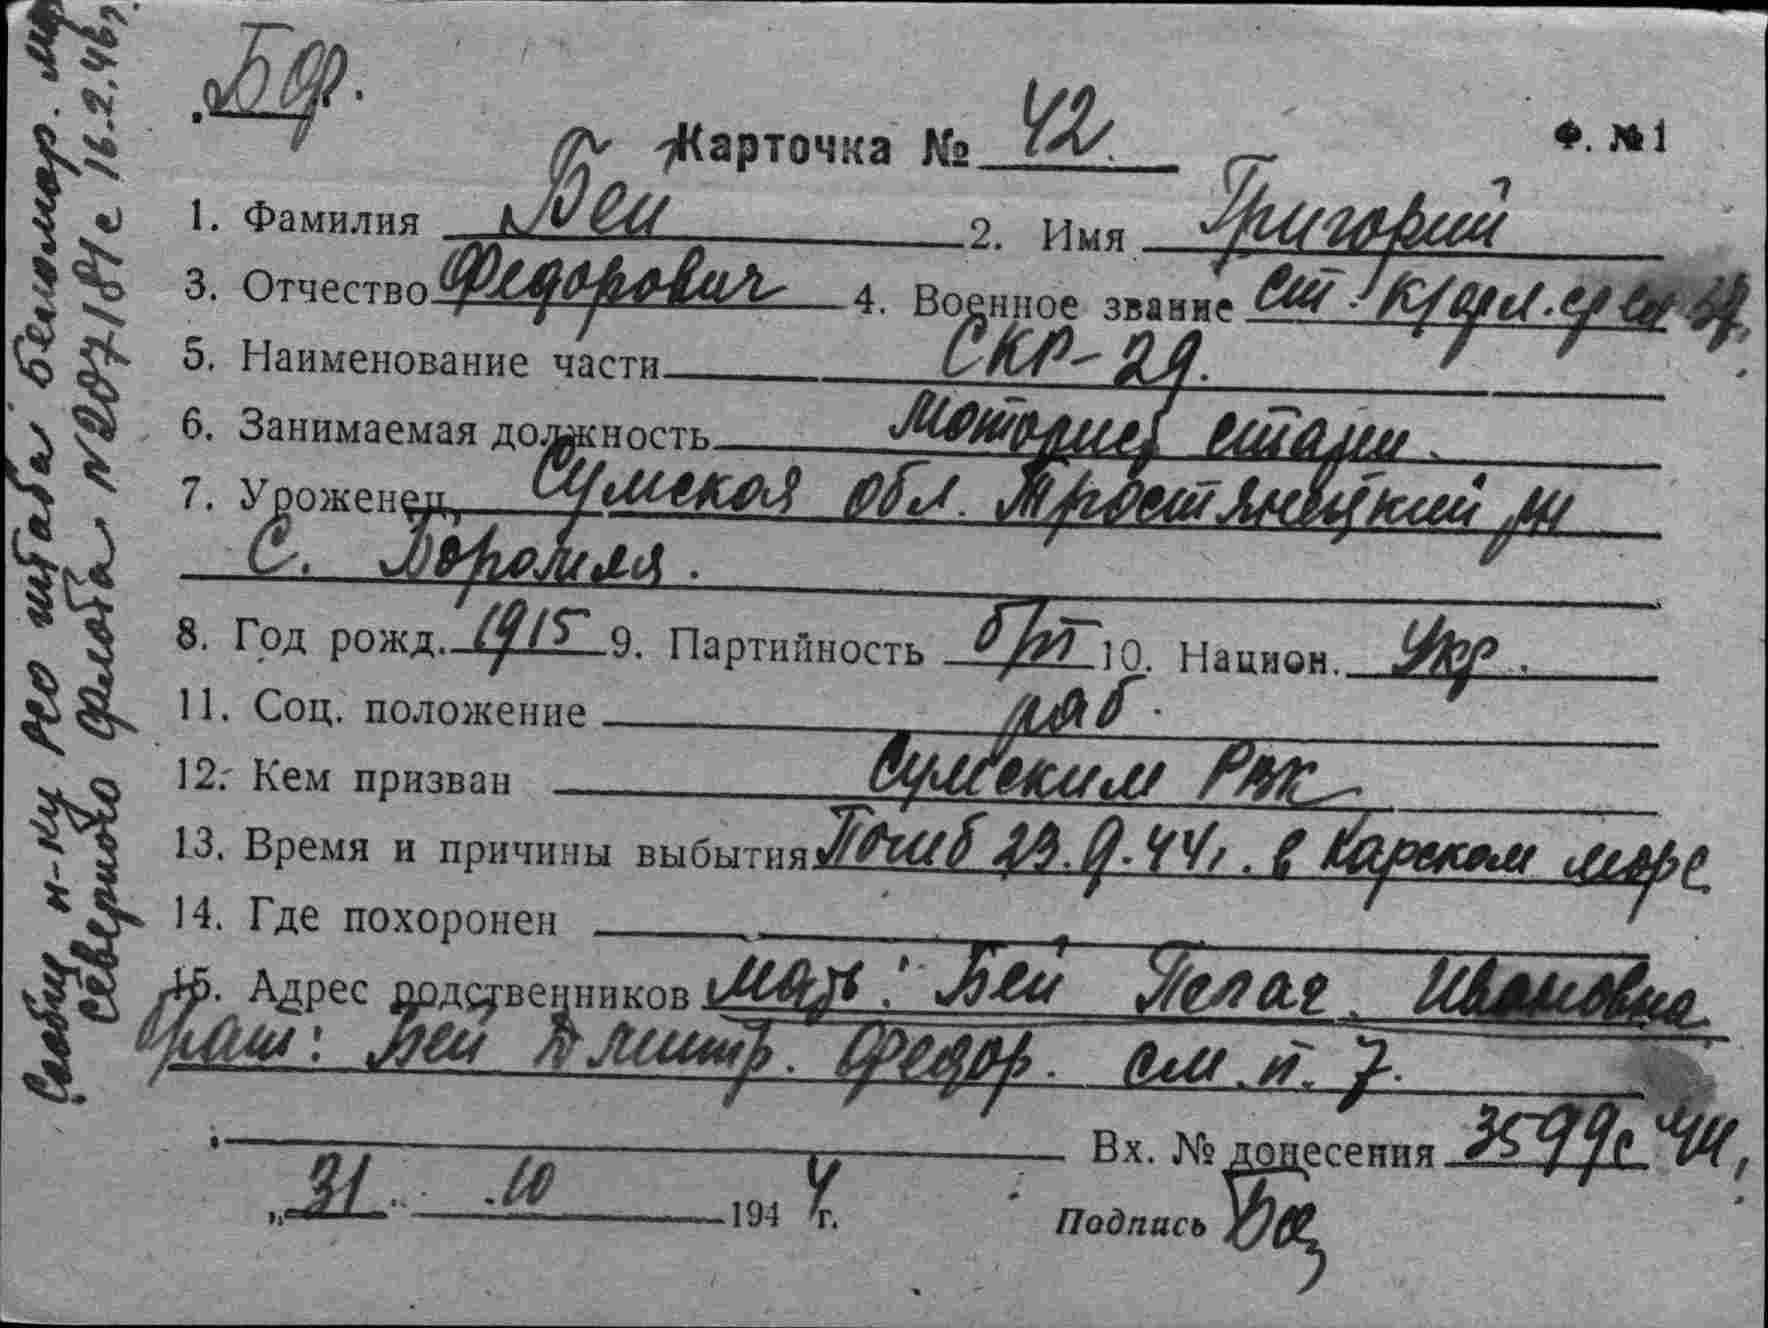 БФ.
Карточка № 42.
Ф. №1
1. Фамилия Бей 2. Имя Григорий
3. Отчество Федорович 4. Военное звание ст. к/фл.
5. Наименование части СКР-29.
6. Занимаемая должность моторист
7. Уроженец Сумская обл. Тростянецкий рн
С. Боромля.
8. Год рожд. 1915 9. Партийность б/п 10. Национ. Укр.
11. Соц. положение раб.
12. Кем призван Сумским РВК
13. Время и причины выбытия Погиб 23.9.44г. в Карском море
14. Где похоронен
15. Адрес родственников мать: Бей Пелаг. Ивановна
брат: Бей Дмитр. Федор. см. п. 7.
Вх. № донесения 3599с 44г,
„31 .10 1944г.
Подпись
Сообщ н-ку РСО штаба Беломор.
Северного флота №207/ с 16.2.46г.